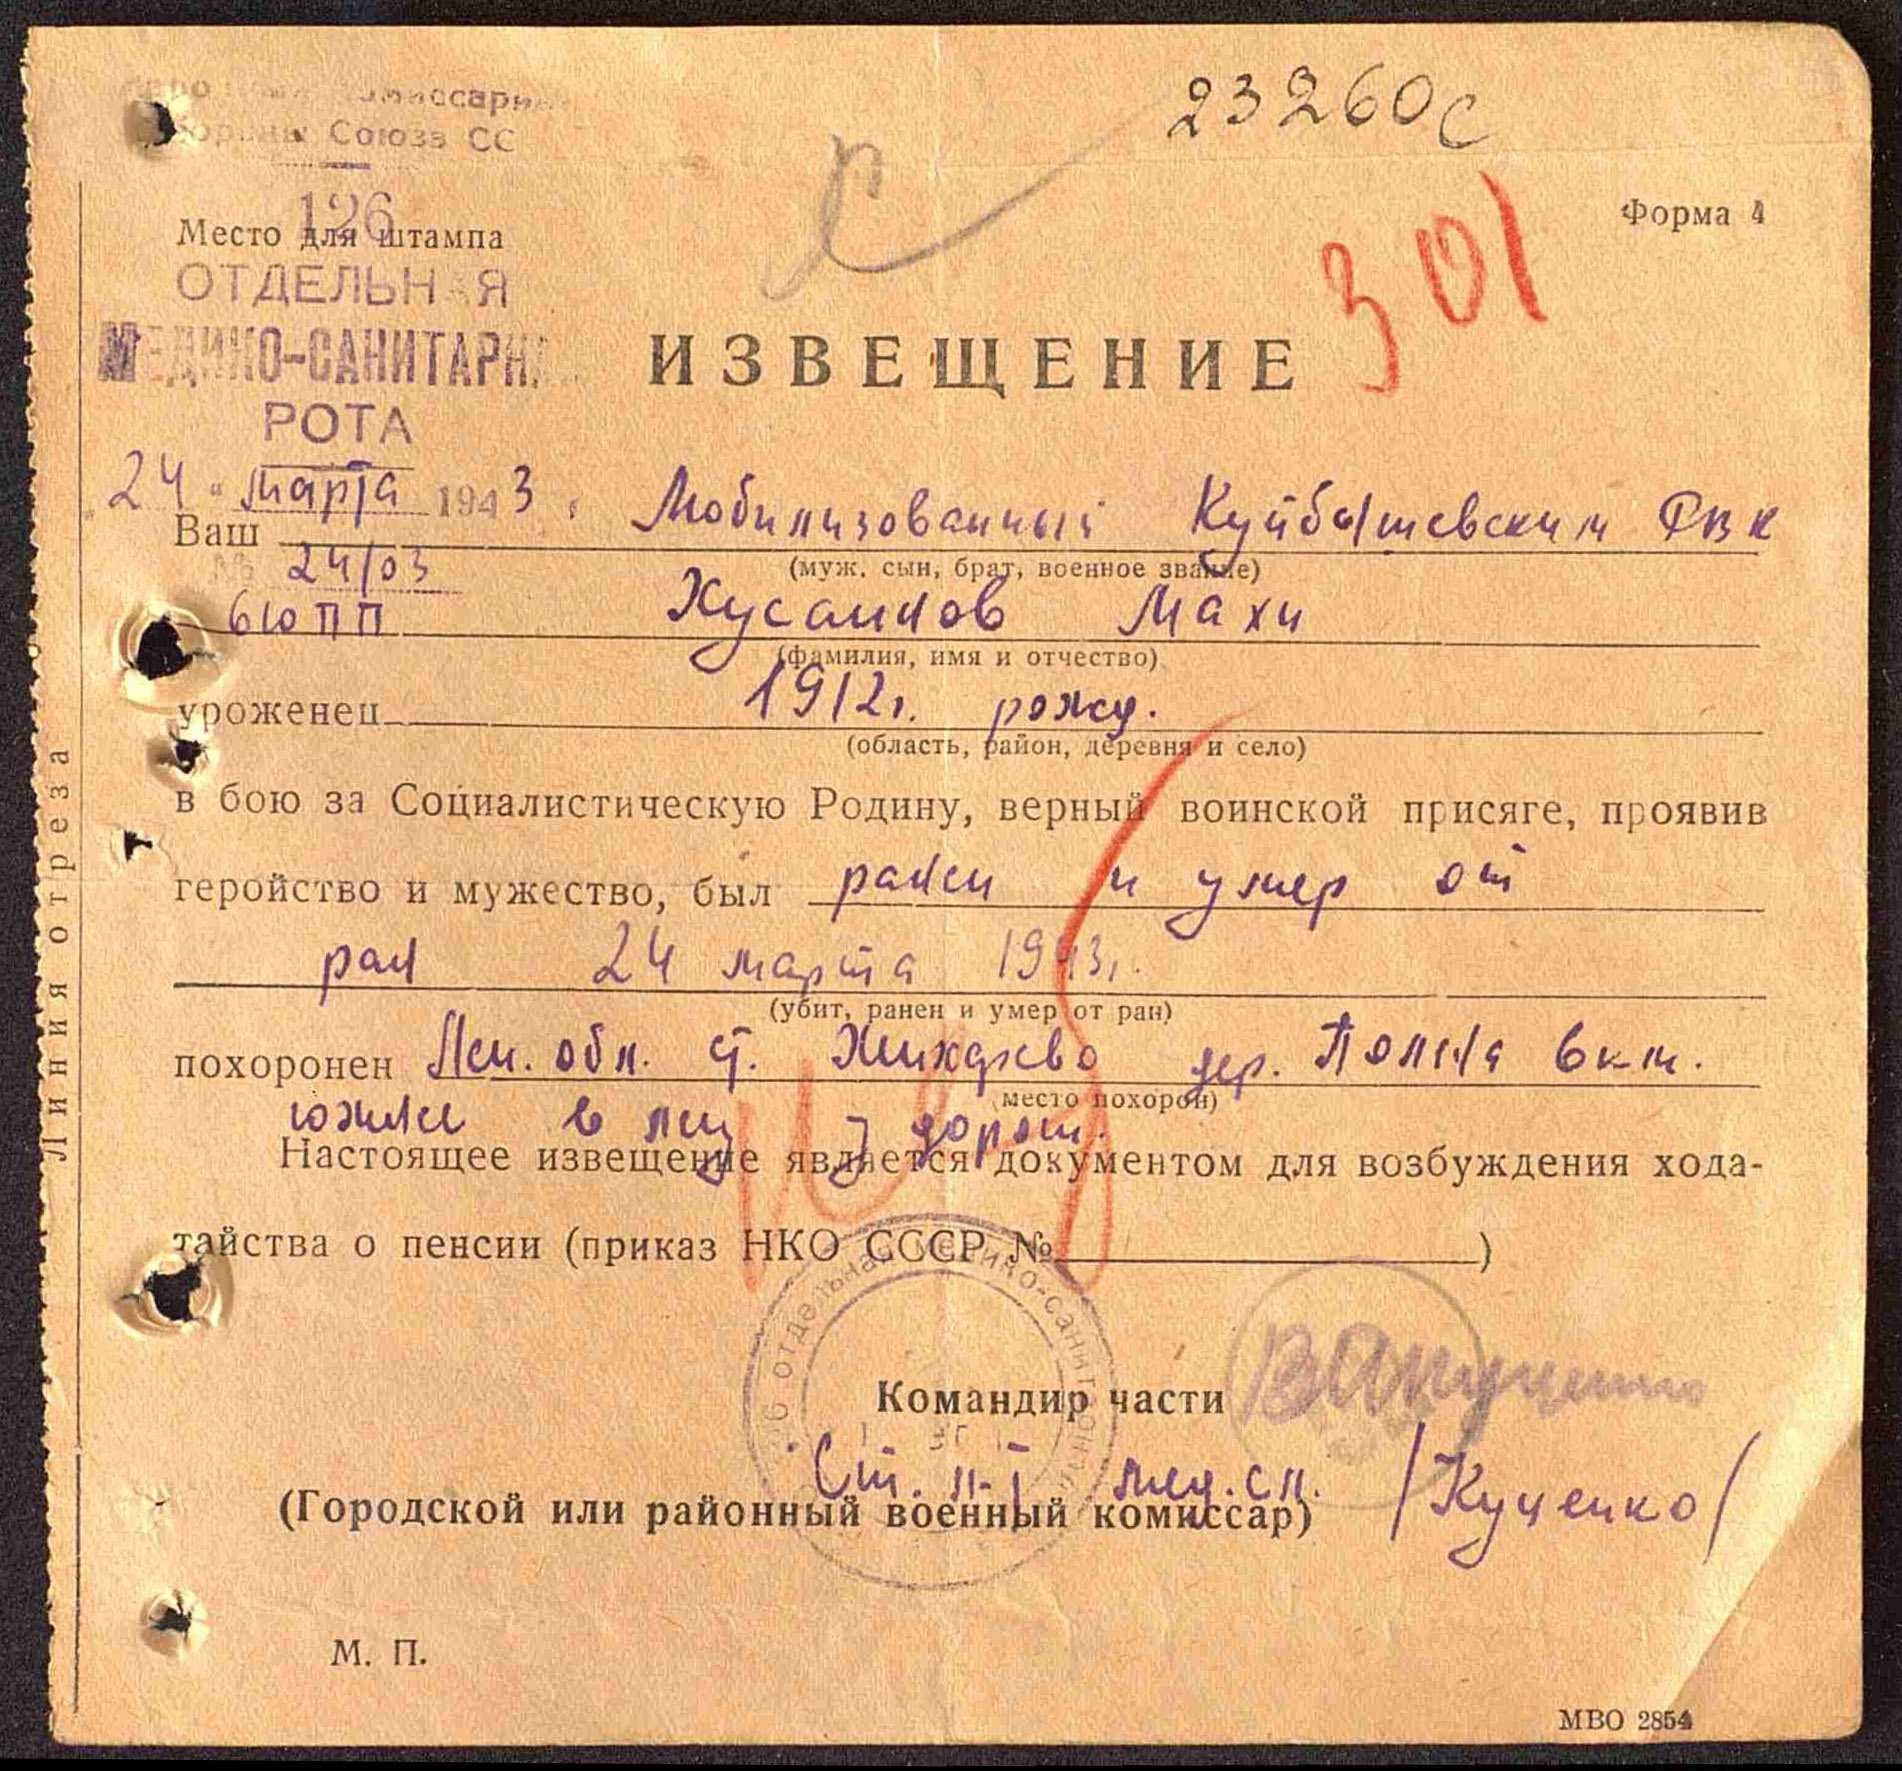 23260с
Союза СС
Форма 4
126
Место для штампа
ОТДЕЛЬНАЯ
МЕДИКО-САНИТАРНА
301
ИЗВЕЩЕНИЕ
РОТА
24 " марта 1943
Ваш Мобилизованный Куйбышевским РВК
(муж, сын, брат, военное звание)
№ 24/03
Хусаинов Махи
(фамилия, имя и отчество)
уроженец 1912г. рожд.
(область, район, деревня и село)
в бою за Социалистическую Родину, верный воинской присяге, проявив
геройство и мужество, был ранен и умер от
ран 24 марта 1943г.
(убит, ранен и умер от ран)
похоронен Лен. обл. ст. Жихарево дер. 6 км.
(место похорон)
южнее в дорог.
Настоящее извещение является документом для возбуждения хода-
тайства о пенсии (приказ НКО СССР № )
Командир части
Ст. л-т мед.сл. /Куценко/
(Городской или районный военный комиссар)
М. П.
МВО 2854
Линия отреза